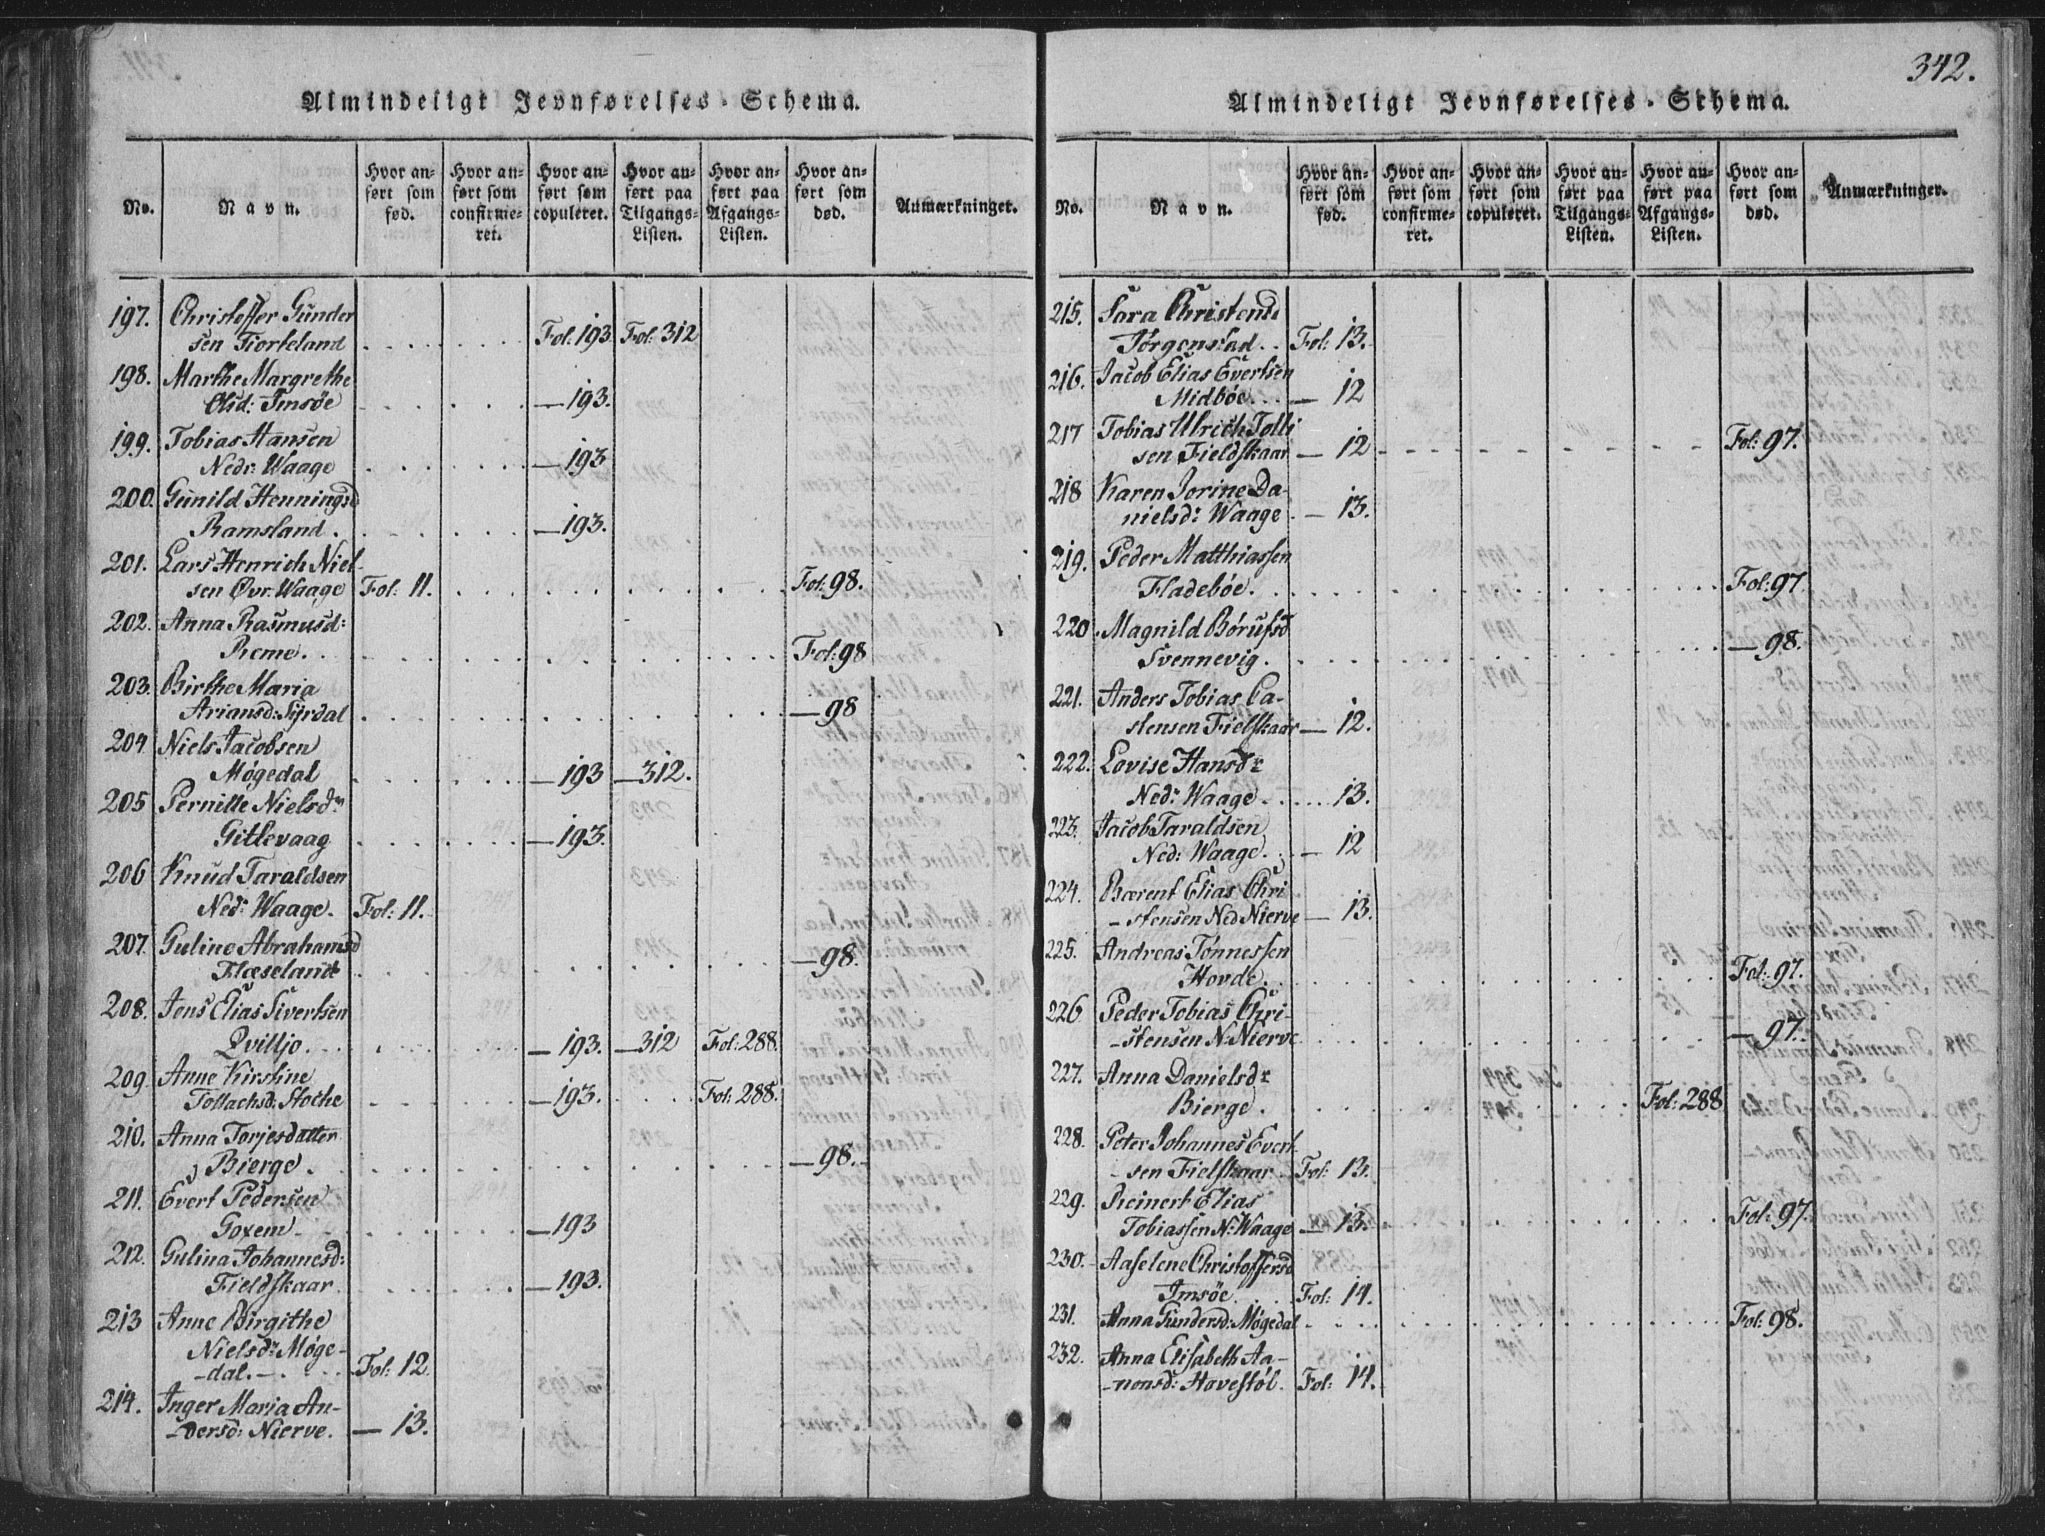 342.
Almindeligt Jevnførelses-Schema.
No.
Navn.
Hvor anført som fød.
Hvor anført som confirmeret.
Hvor anført som copuleret.
Hvor anført paa Tilgangs-Listen.
Hvor anført paa Afgangs-Listen.
Hvor anført som død.
Anmærkninger.
197. Christoffer Gunder
sen Tiorkeland . . . Fol: 193 Fol: 312
198. Marthe Margrethe
Olsd: Imsöe . . . — 193.
199. Tobias Hansen
Nedr: Waage . . . — 193
200. Gunild Henningsd
Ramsland . . . — 193.
201. Lars Henrich Niel-
sen Øvr: Waage Fol: 11. . . . Fol: 98.
202. Anna Rasmusd:
Reme . . . Fol: 98
203. Birthe Maria
Ariansd: Syrdal . . . — 98
204 Niels Jacobsen
Møgedal . . . — 193 — 312.
205 Pernille Nielsdr
Gitlevaag . . . — 193.
206 Knud Taraldsen
Nedr: Waage. Fol: 11.
207. Guline Abrahamsd
Flæseland . . . — 98.
208. Jens Elias Sivertsen
Qvilljo . . . — 193. — 312 Fol: 288.
209. Anne Kirstine
Tollachsd: Hothe . . . — 193. . . . Fol: 288.
210. Anna Torjesdatter
Bierge . . . — 98. -
211. Evert Pedersen
Goxem . . . — 193
212. Gulina Johannesd:
Fieldskaar . . . — 193.
213 Anne Birgithe
Nielsdr: Møge-
-dal. - . . . Fol: 12
214. Inger Maria An-
-dersd: Nierve. — 13.
Almindeligt Jevnførelses-Schema.
No.
Navn.
Hvor anført som fød.
Hvor anført som confirmeret.
Hvor anført som copuleret.
Hvor anført paa Tilgangs-Listen.
Hvor anført paa Afgangs-Listen.
Hvor anført som død.
Anmærkninger.
215. Sara Christensd
Jörgenstad . . Fol: 13.
216. Jacob Elias Evertsen
Midböe . . . — 12
217 Tobias Ulrich Tolli
sen Fieldskaar — 12 - - - Fol: 97.
218 Karen Jorine Da-
nielsd: Waage . — 13.
219. Peder Matthiassen
Fladeböe . . . Fol: 97
220 Magnild Börufsd
Svennevig . . . — 98.
221. Anders Tobias Ca-
stensen Fielskaar — 12.
222. Lovise Hansdr
Nedr Waage . . . 13.
223. Jacob Taraldsen
Ned: Waage. . — 12
224. Bærent Elias Chri
-stensen Ned Nierve — 13.
225. Andreas Tönnessen
Hovde . . . Fol: 97.
226 Peder Tobias Chri-
-stensen N: Nierve . . . — 97.
227. Anna Danielsdr
Bierge . . . Fol: 288
228. Peter Johannes Evert
-sen Fielskaar Fol: 13.
229. Reinert Elias
Tobiassen N: Waage — 13. . . . Fol: 97.
230. Aaselene Christoffersd
Imsöe . . . Fol: 14.
231. Anna Gundersd: Møgedal . . . Fol: 98.
232. Anna Elisabeth Aa-
-nonsd: Hovestøl. Fol: 14.